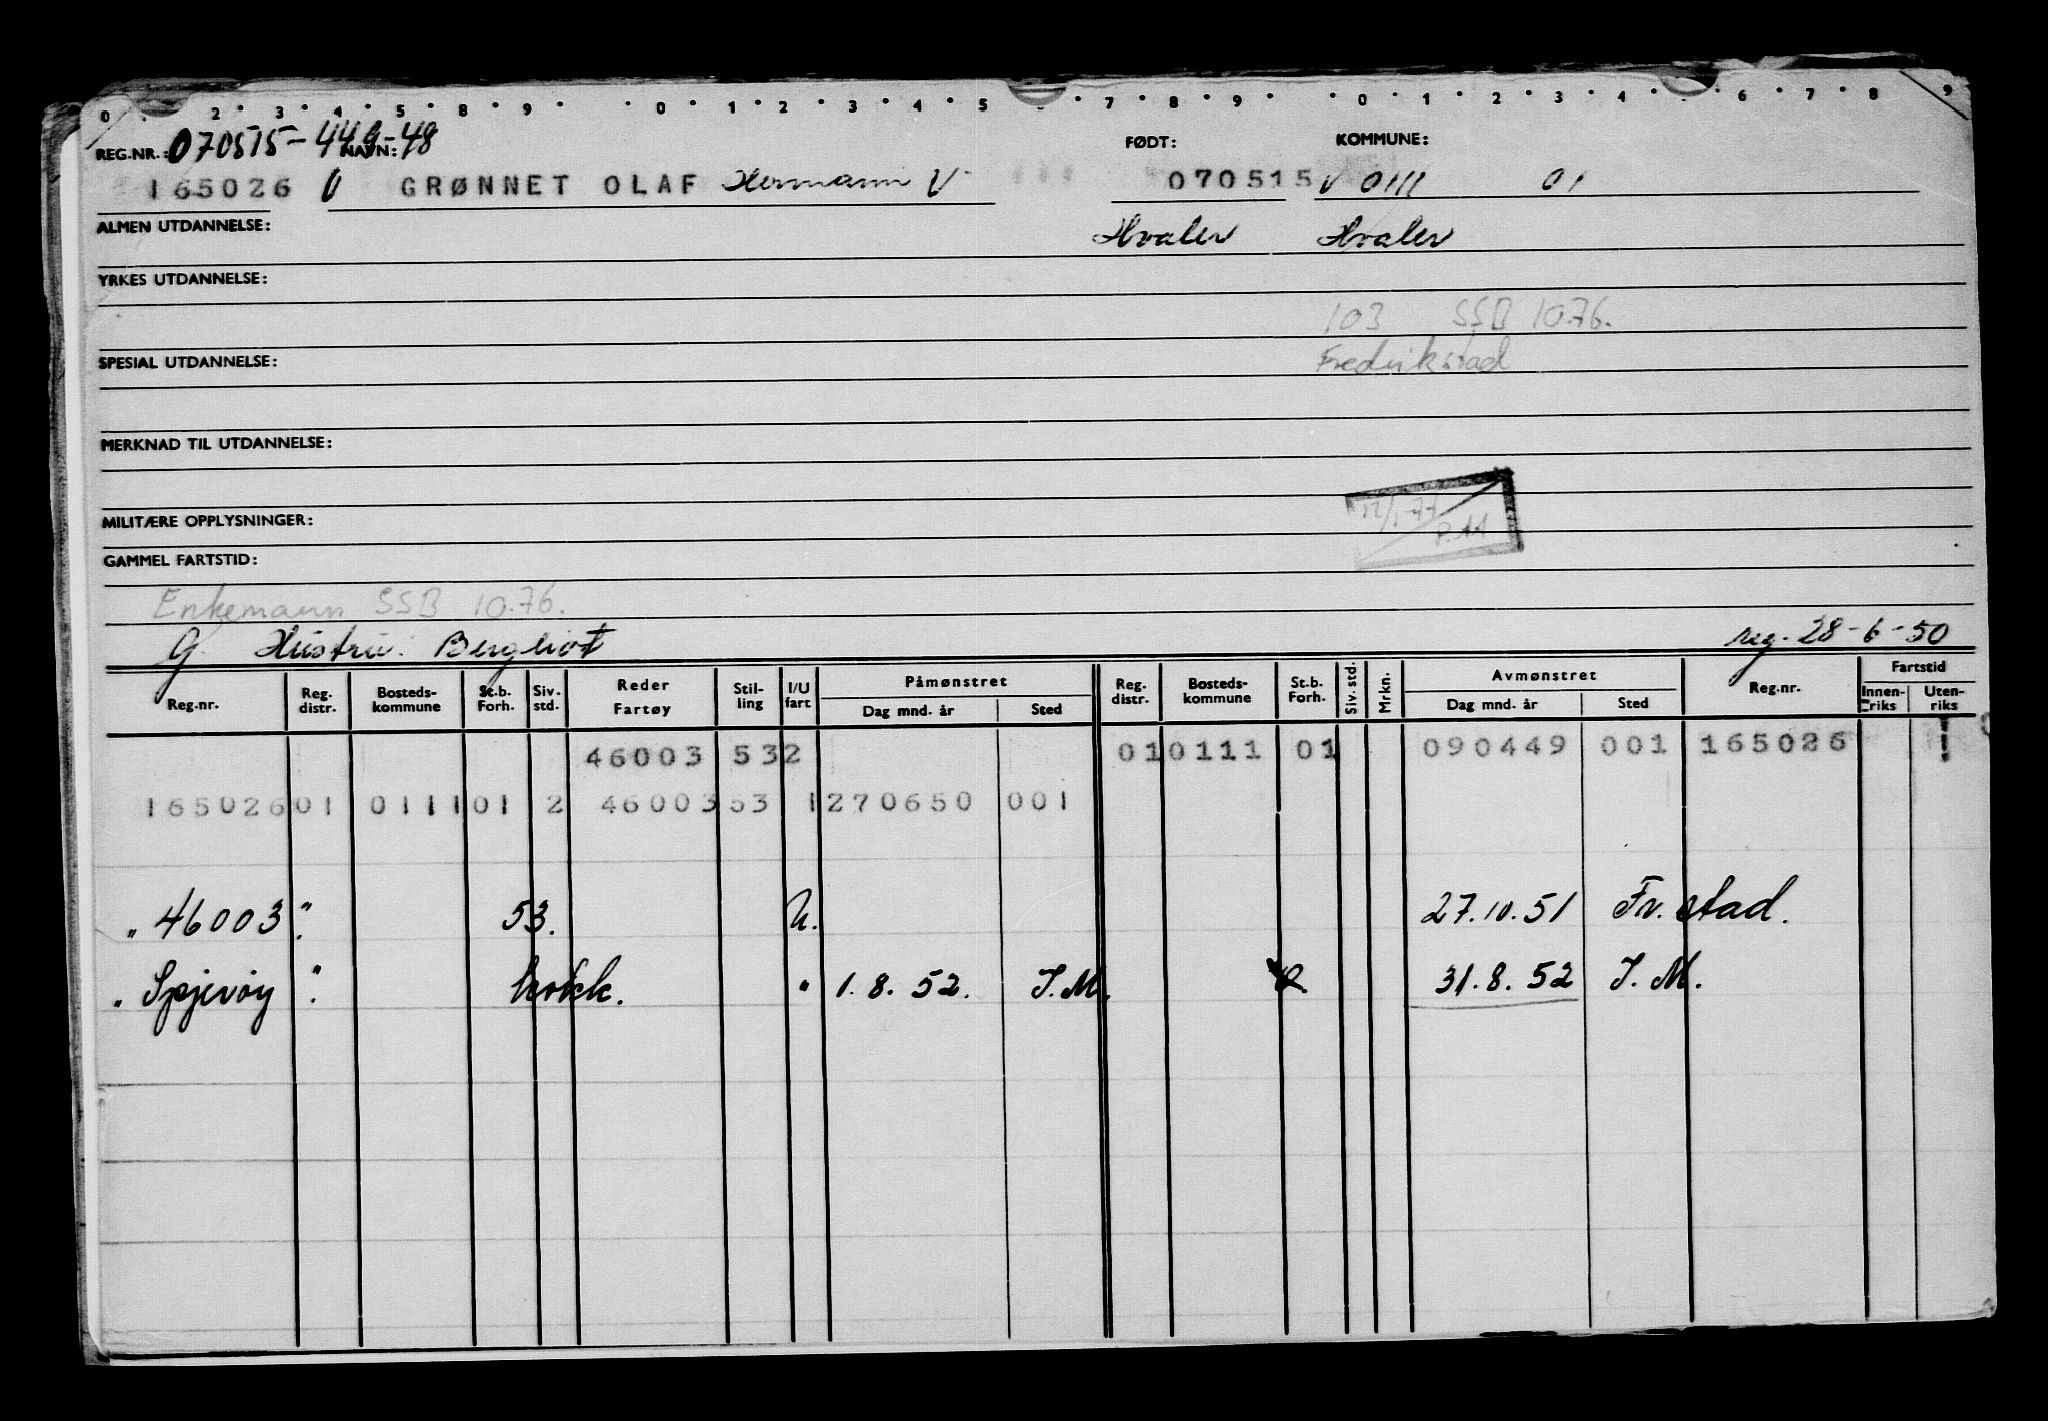 0 2 3 4 5 8 9 0 1 2 3 4 5 7 8 9 0 1 2 3 4 6 7 8 9
REG.NR.: 070515-449-48 NAVN: FØDT: KOMMUNE:
165026 V GRØNNET OLAF Hermann V 070515 V 0111 01
ALMEN UTDANNELSE: Hvaler Hvaler
YRKES UTDANNELSE:
103 SSB 10.76.
SPESIAL UTDANNELSE: Fredrikstad
MERKNAD TIL UTDANNELSE:
MILITÆRE OPPLYSNINGER:
GAMMEL FARTSTID:
Enkemann SSB 10.76.
G. Hustru: Bergliot reg. 28-6-50
Reg.nr. Reg. distr. Bosteds-kommune St.b. Forh. Siv. std. Reder Fartøy Stil-ling I/U fart Påmønstret Dag mnd. år Sted Reg. distr. Bosteds-kommune St.b. Forh. Siv. std. Mrkn. Avmønstret Dag mnd. år Sted Reg.nr. Fartstid Innen-riks Uten-riks
46003 53 2 01 0111 01 090449 001 165026
165026 01 0111 01 2 46003 53 1 270650 001
" 46003 " 53. U. 27.10.51 Fr.stad.
" Spjerøy " kokk. " 1.8.52. I.M. 31.8.52 I.M.